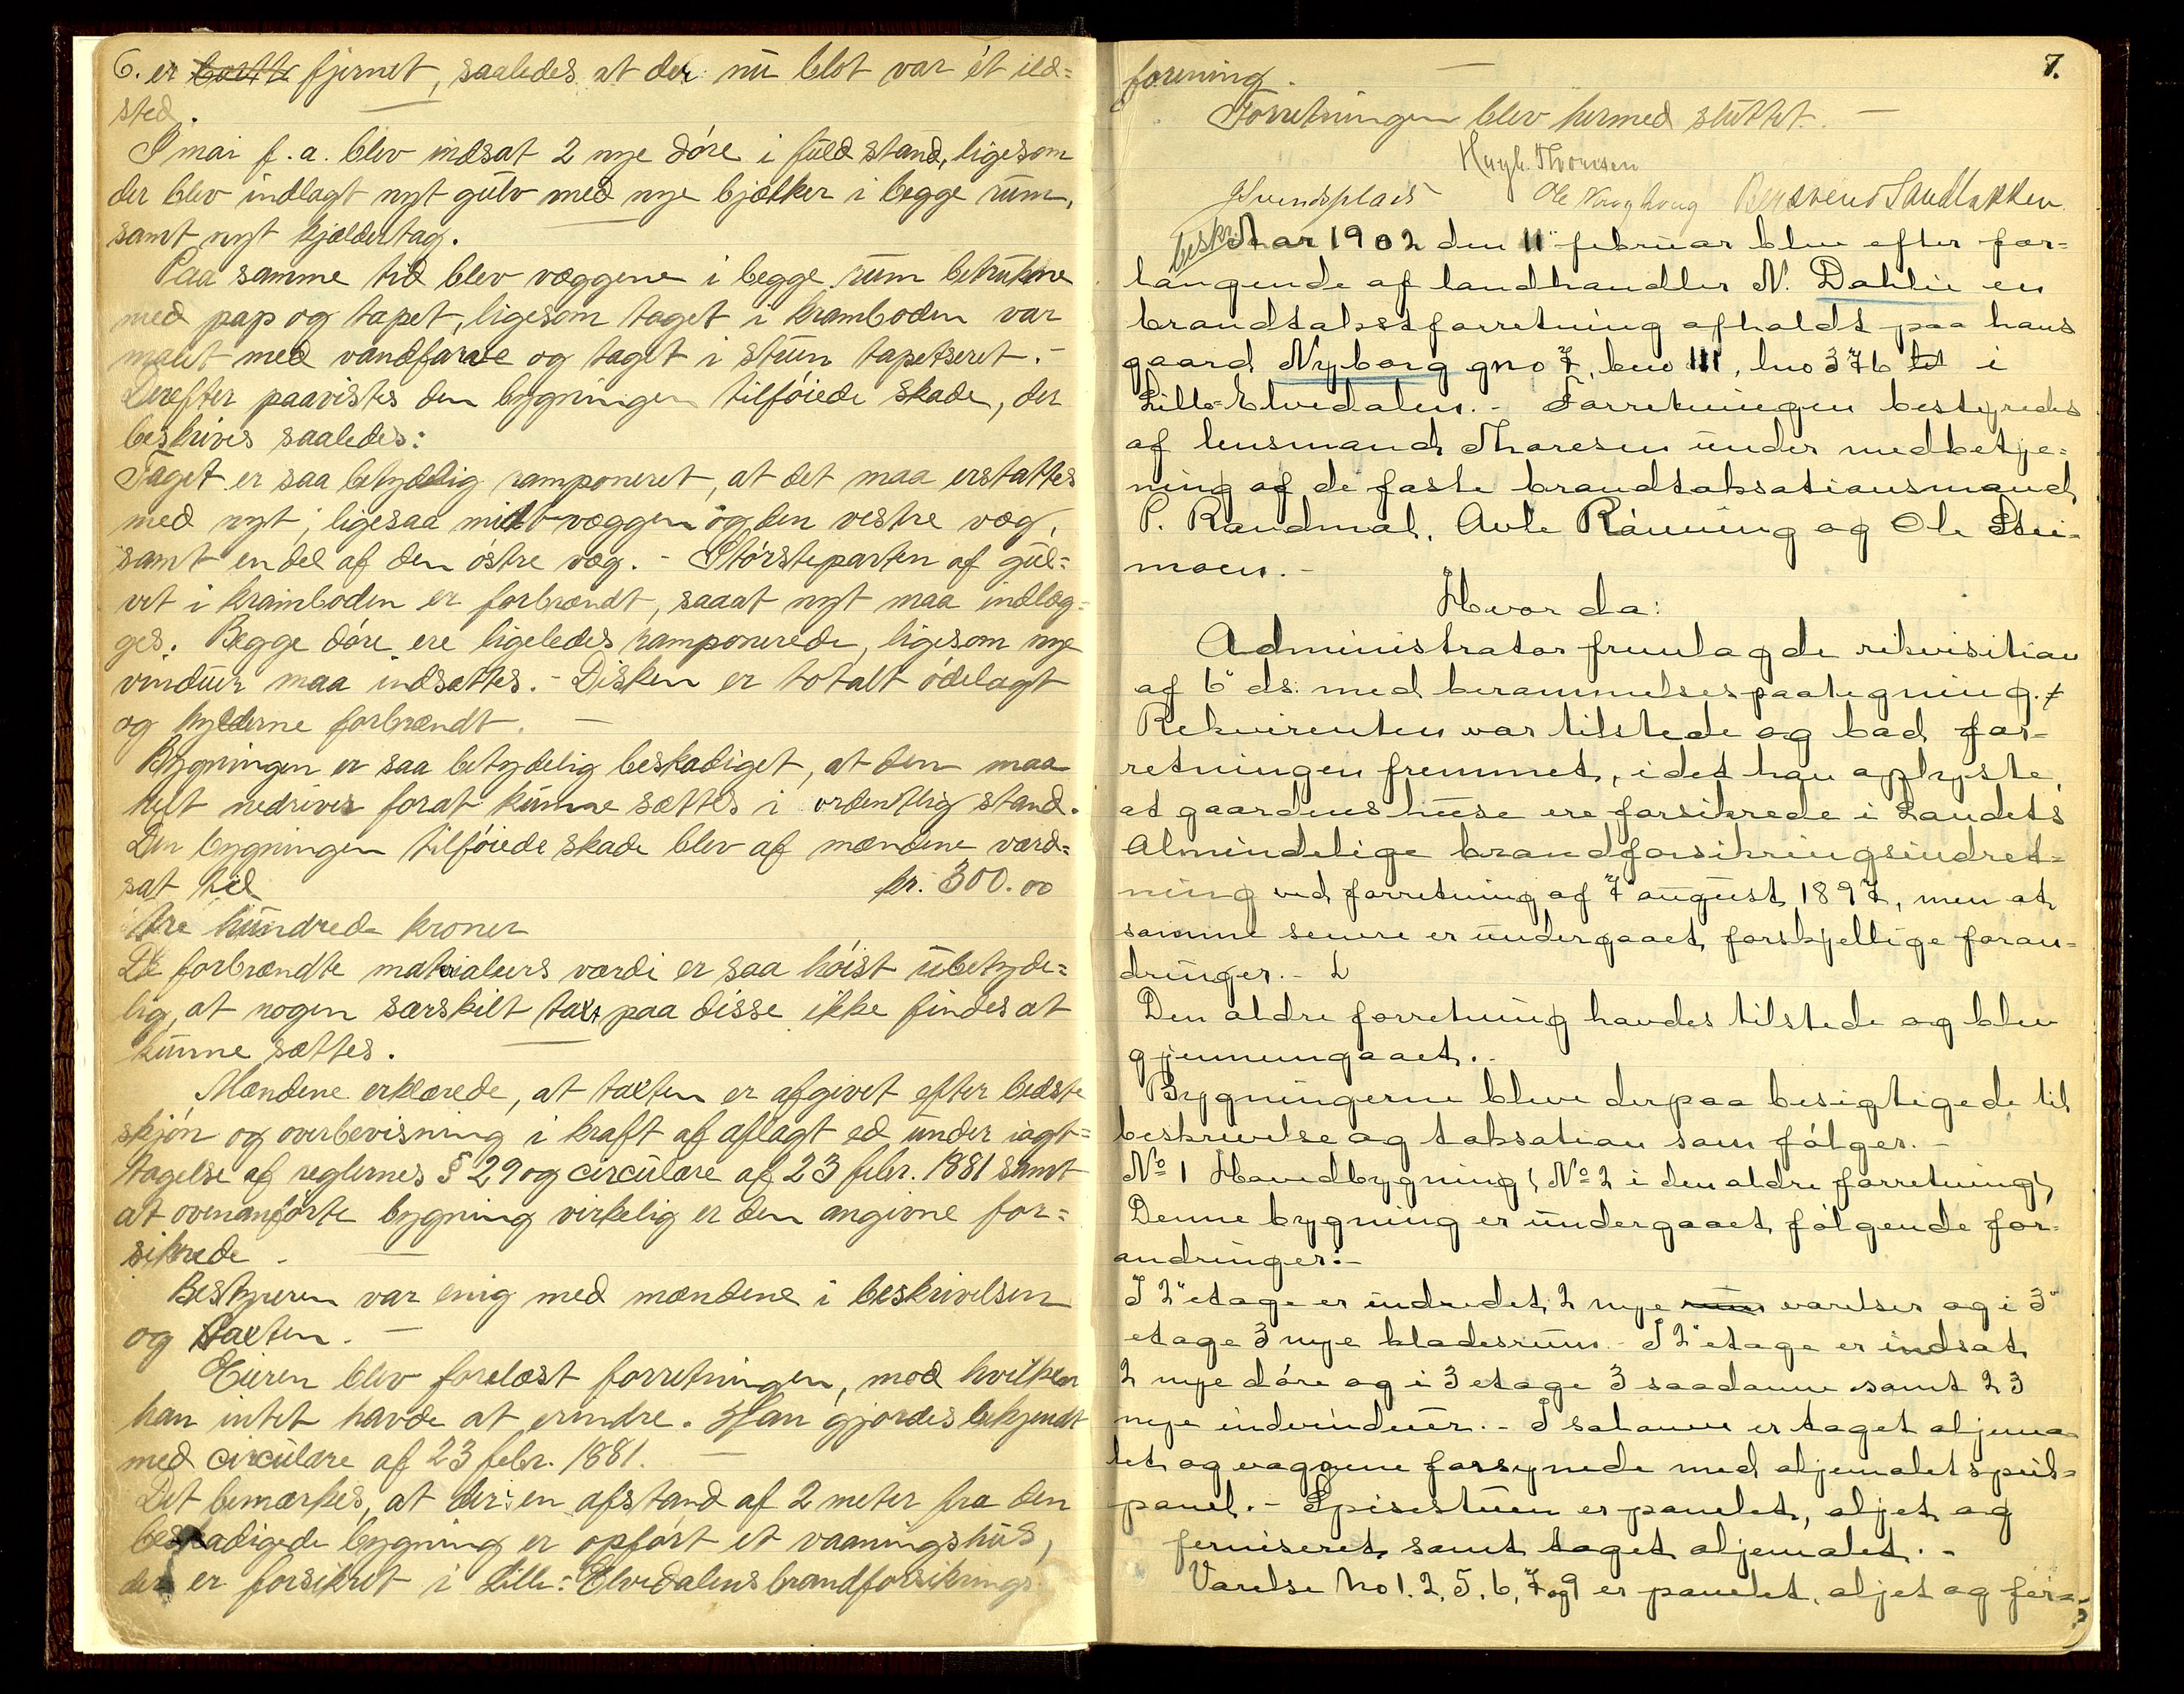 6. er bortte fjernet, saaledes at der nu blot var ét ild=
sted.
I mai f. a. blev indsat 2 nye døre i fuld stand, ligesom
der blev indlagt nyt gulv med nye bjælker i begge rum,
samt nyt kjældertag.
Paa samme tid blev væggene i begge rum betrukne
med pap og tapet, ligesom taget i kramboden var
malet med vandfarve og taget i stuen tapetseret. -
Derefter paavistes den bygningen tilføiede skade, der
beskrives saaledes:
Taget er saa betydelig ramponeret, at det maa erstattes
med nyt; ligesaa midtvæggen og den vestre væg,
samt en del af den østre væg. - Størsteparten af gul=
vet i kramboden er forbrændt, saaat nyt maa indlæg=
ges. Begge døre ere ligeledes ramponerede, ligesom nye
vinduer maa indsættes. - Disken er totalt ødelagt
og hylderne forbrændt. -
Bygningen er saa betydelig beskadiget, at den maa
helt nedrives forat kunne sættes i ordentlig stand.
Den bygningen tilføiede skade blev af mændene værd=
sat til kr. 300.00
tre hundrede kroner
De forbrændte materialiers værdi er saa høist ubetyde=
lig, at nogen særskilt taxt paa disse ikke findes at
kunne sættes. -
Mændene erklærede, at taxten er afgivet efter bedste
skjøn og overbevisning i kraft af aflagt ed under iagt=
tagelse af reglernes § 29 og circulære af 23 febr. 1881 samt
at ovenanførte bygning virkelig er den angivne for=
sikrede -
Bestyreren var enig med mændene i beskrivelsen
og taxten. -
Eieren blev forelæst forretningen, mod hvilken
han intet havde at erindre. Han gjordes bekjendt
med circulære af 23 febr. 1881. -
Det bemærkes, at der i en afstand af 2 meter fra den
beskadigede bygning er opført et vaaningshus,
der er forsikret i Lille=Elvedalens brandforsikrings
7.
forening. -
Forretningen blev hermed sluttet. -
Hagb. Thoresen
Svendsplads Ole Bersvend Sandbakken
beskr. Aar 1902 den 11" februar blev efter for=
langende af landhandler N. Dahlie en
brandtakstforretning afholdt paa hans
gaard Nyborg gno 7, bno 111, lno 376 i
Lille=Elvedalen. - Forretningen bestyredes
af lensmand Thoresen under medbetje=
ning af de faste brandtaksationsmænd
P. Randmæl, Avle Rønning og Ole Stei=
moen. -
Hvor da:
Administrator fremlagde rekvisition
af 6" ds. med berammelsespaategning.
Rekvirenten var tilstede og bad for=
retningen fremmet, idet han oplyste,
at gaardens huse ere forsikrede i Landets
Almindelige brandforsikringsindret=
ning ved forretning af 7" august 1897, men at
samme senere er undergaaet forskjellige foran=
dringer. -
Den ældre forretning havdes tilstede og blev
gjennemgaaet. -
Bygningerne bleve derpaa besigtigede til
beskrivelse og taksation som følger. -
No 1 Hovedbygning (No 2 i den ældre forretning)
Denne bygning er undergaaet følgende for=
andringer: -
I 2" etage er indredet 2 nye rum værelser og i 3"
etage 3 nye kladesrum. - I 2" etage er indsat
2 nye døre og i 3 etage 3 saadanne samt 23
nye indvinduer. - I salonen er taget oljema=
let og væggene forsynede med oljemalet speil=
panel. - Spisestuen er panelet, oljet og
ferniseret samt taget oljemalet. -
Værelse No 1. 2, 5. 6, 7 og 9 er panelet, oljet og fer=